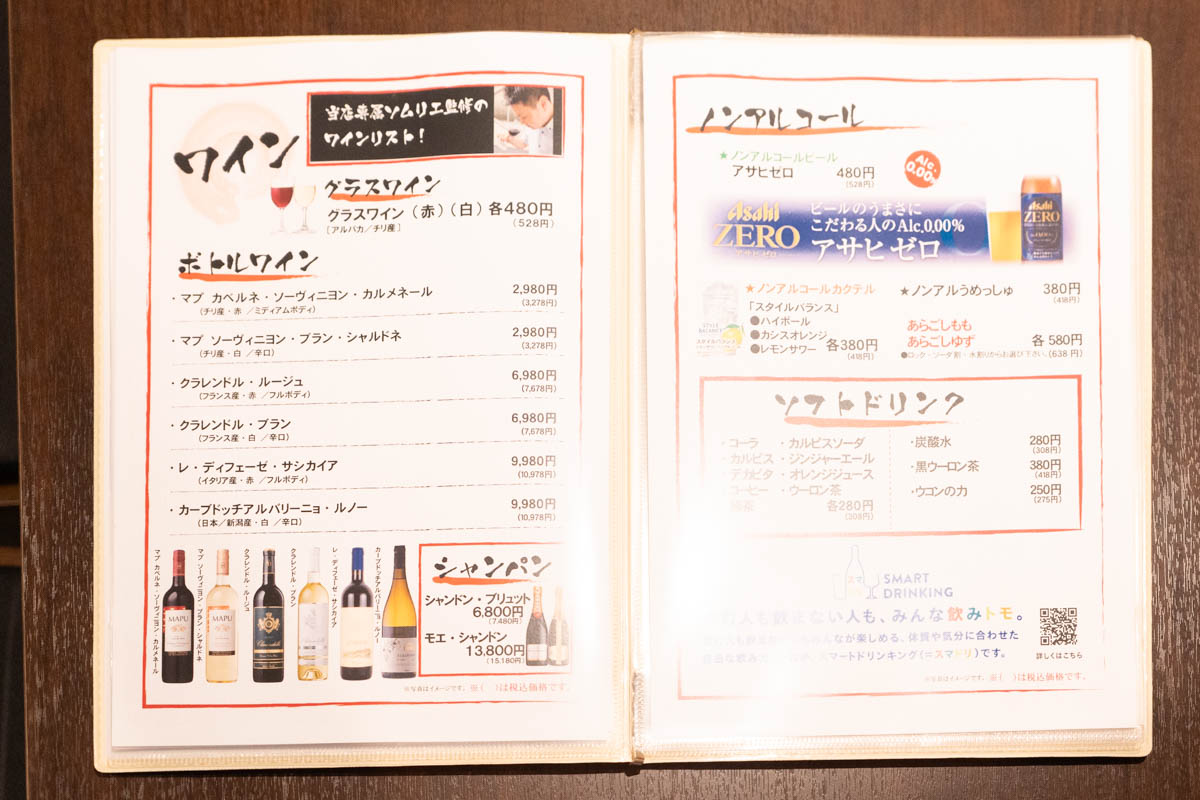 当店専属ソムリエ監修の
ワインリスト!
ワイン
グラスワイン
グラスワイン（赤）（白）各480円
［アルパカ／チリ産］ （528円）
ボトルワイン
・マプ カベルネ・ソーヴィニヨン・カルメネール 2,980円
（チリ産・赤 ／ミディアムボディ） (3,278円)
・マプ ソーヴィニヨン・ブラン・シャルドネ 2,980円
（チリ産・白 ／辛口） (3,278円)
・クラレンドル・ルージュ 6,980円
（フランス産・赤 ／フルボディ） (7,678円)
・クラレンドル・ブラン 6,980円
（フランス産・白 ／辛口） (7,678円)
・レ・ディフェーゼ・サシカイア 9,980円
（イタリア産・赤 ／フルボディ） (10,978円)
・カーブドッチアルバリーニョ・ルノー 9,980円
（日本／新潟産・白 ／辛口） (10,978円)
マプ カベルネ・ソーヴィニヨン・カルメネール
マプ ソーヴィニヨン・ブラン・シャルドネ
クラレンドル・ルージュ
クラレンドル・ブラン
レ・ディフェーゼ・サシカイア
カーブドッチアルバリーニョ・ルノー
MAPU
MAPU
シャンパン
シャンドン・ブリュット
6.800円
(7.480円)
モエ・シャンドン
13.800円
(15.180円)
※写真はイメージです。※（ ）は税込価格です。
ノンアルコール
★ノンアルコールビール
アサヒゼロ 480円
(528円)
Alc.
0.00%
Asahi
ZERO
アサヒゼロ
ビールのうまさに
こだわる人のAlc.0.00%
アサヒ ゼロ
Asahi
ZERO
★ノンアルコールカクテル
「スタイルバランス」
●ハイボール
●カシスオレンジ
●レモンサワー 各380円
(418円)
STYLE
BALANCE
スタイルバランス
★ノンアルうめっしゅ 380円
(418円)
あらごしもも
あらごしゆず 各580円
●ロック・ソーダ割・水割りからお選び下さい。(638円)
ソフトドリンク
・コーラ ・カルピスソーダ
・カルピス ・ジンジャーエール
・デカビタ ・オレンジジュース
・コーヒー ・ウーロン茶
各280円
(308円)
・炭酸水 280円
(308円)
・黒ウーロン茶 380円
(418円)
・ウコンの力 250円
(275円)
スマ
SMART
DRINKING
人も飲まない人も、みんな飲みトモ。
みんなが楽しめる、体質や気分に合わせた
スマートドリンキング（=スマドリ）です。
詳しくはこちら
※写真はイメージです。※（ ）は税込価格です。